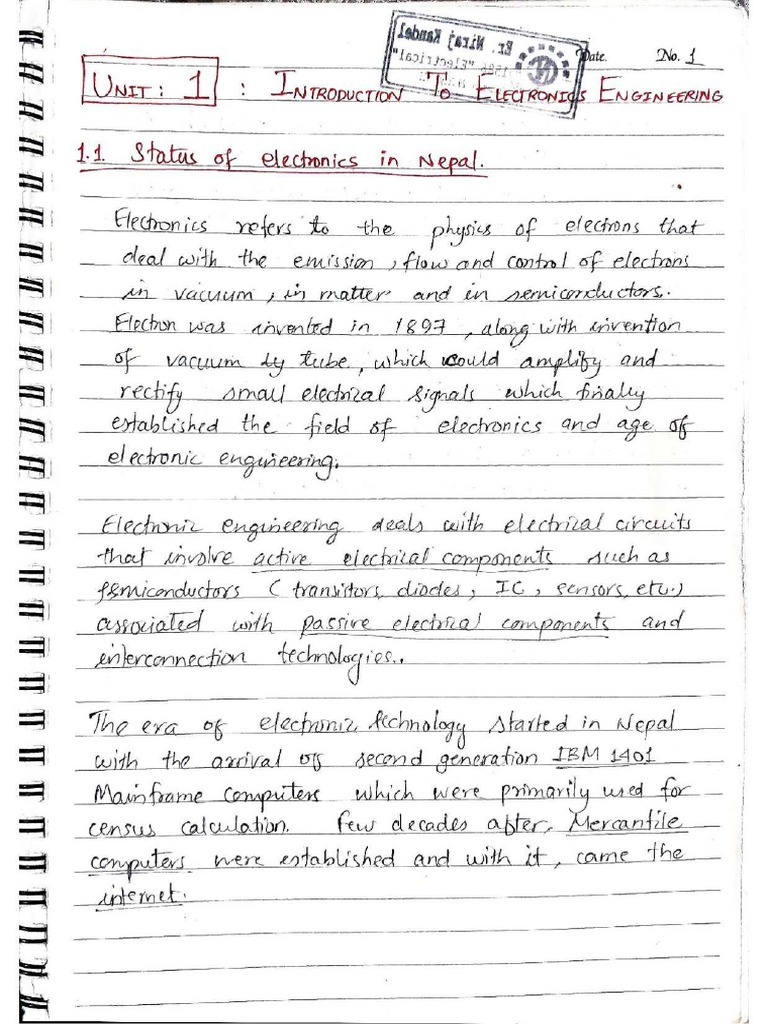 Er. Niraj Kandel
"Electrical"
Date. No. 1
UNIT: 1 : INTRODUCTION TO ELECTRONICS ENGINEERING
1.1. Status of electronics in Nepal.
Electronics refers to the physics of electrons that
deal with the emission, flow and control of electrons
in vacuum, in matter and in semiconductors.
Electron was invented in 1897, along with invention
of vacuum tube, which could amplify and
rectify small electrical signals which finally
established the field of electronics and age of
electronic engineering.
Electronic engineering deals with electrical circuits
that involve active electrical components such as
semiconductors (transistors, diodes, IC, sensors, etc.)
associated with passive electrical components and
interconnection technologies..
The era of electronic technology started in Nepal
with the arrival of second generation IBM 1401
Mainframe computers which were primarily used for
census calculation. Few decades after, Mercantile
computers were established and with it, came the
internet.